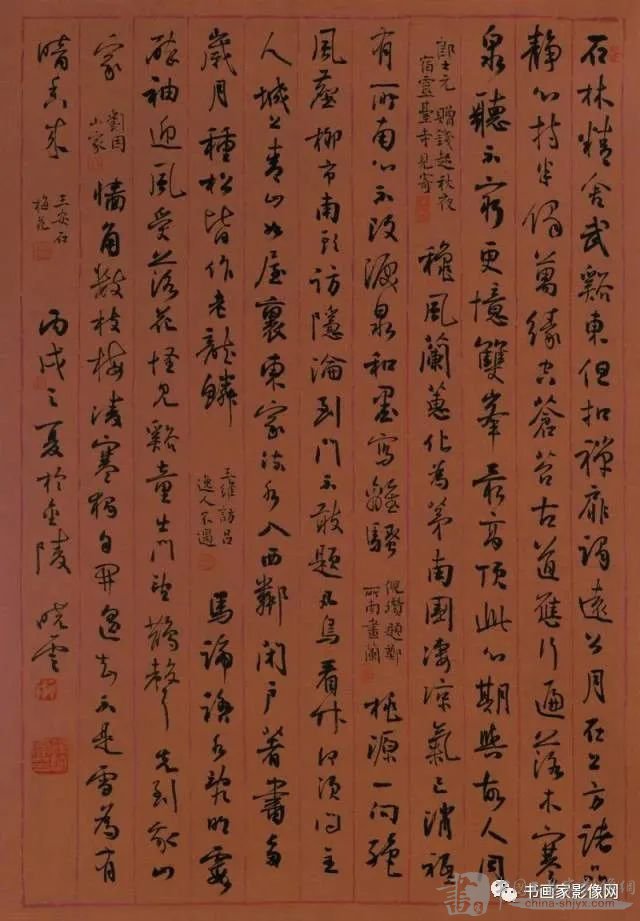 石林精舍武谿東但扣禪扉謁遠公月在上方諸品
靜心持半偈萬緣空蒼苔古道應行遍落木寒
泉聽不窮更憶雙峯最高頂此心期與故人同
郎士元 贈錢起秋夜
宿靈臺寺見寄
穐風蘭蕙化為茅南國淒涼氣已消祇
有所南心不改淚泉和墨寫離騷
倪瓚題鄭
所南畫蘭
桃源一向絕
風塵柳市南頭訪隱淪到門不敢題凡鳥看竹何須問主
人城上青山如屋裏東家流水入西鄰閉戶著書多
歲月種松皆作老龍鱗
王維訪呂
逸人不遇
馬蹄踏水亂明霞
醉袖迎風受落花怪見谿童出門望鵲聲先到我山
家
劉因
山家
墻角數枝梅凌寒獨自開遙知不是雪為有
暗香來
王安石
梅花
丙戌之夏於金陵 曉雲
书画家影像网
china-shjyx.com